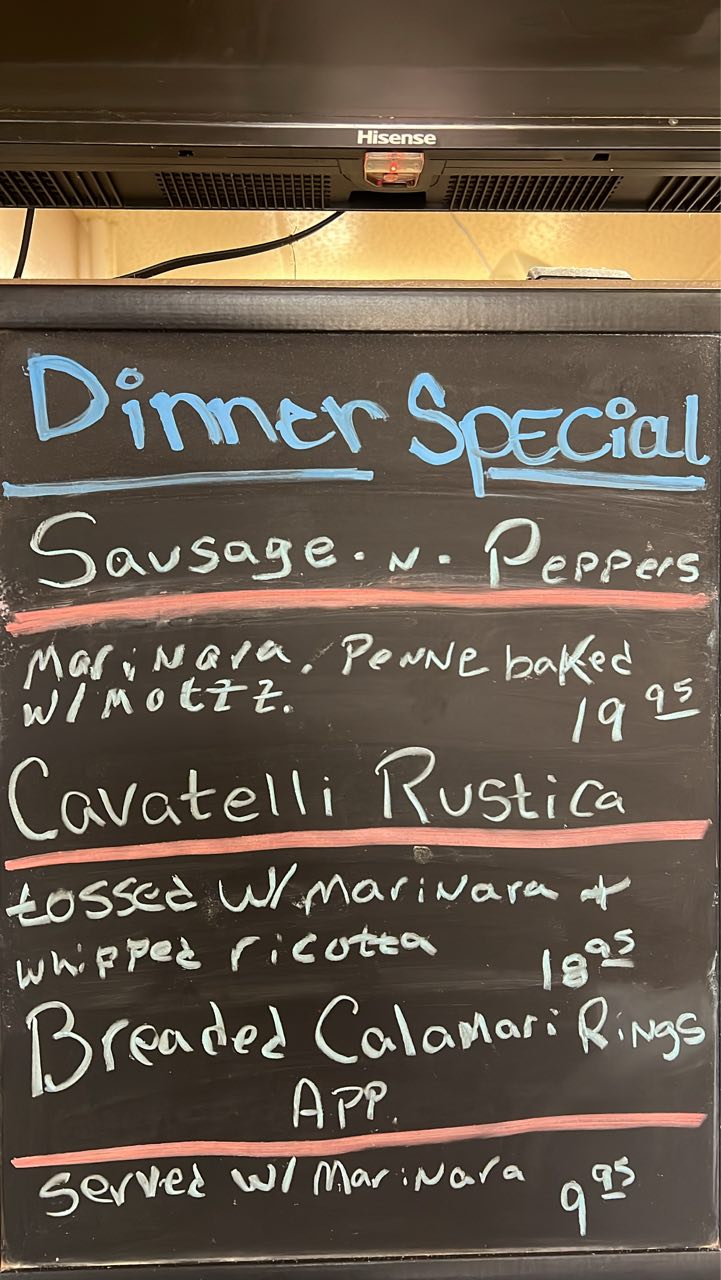 Hisense
Dinner Special
Sausage. N. Peppers
Marinara. Penne baked
w/ Motzz.
19 95
Cavatelli Rustica
tossed w/ Marinara +
whipped ricotta
18 95
Breaded Calamari Rings
APP.
served w/ Marinara
9 95